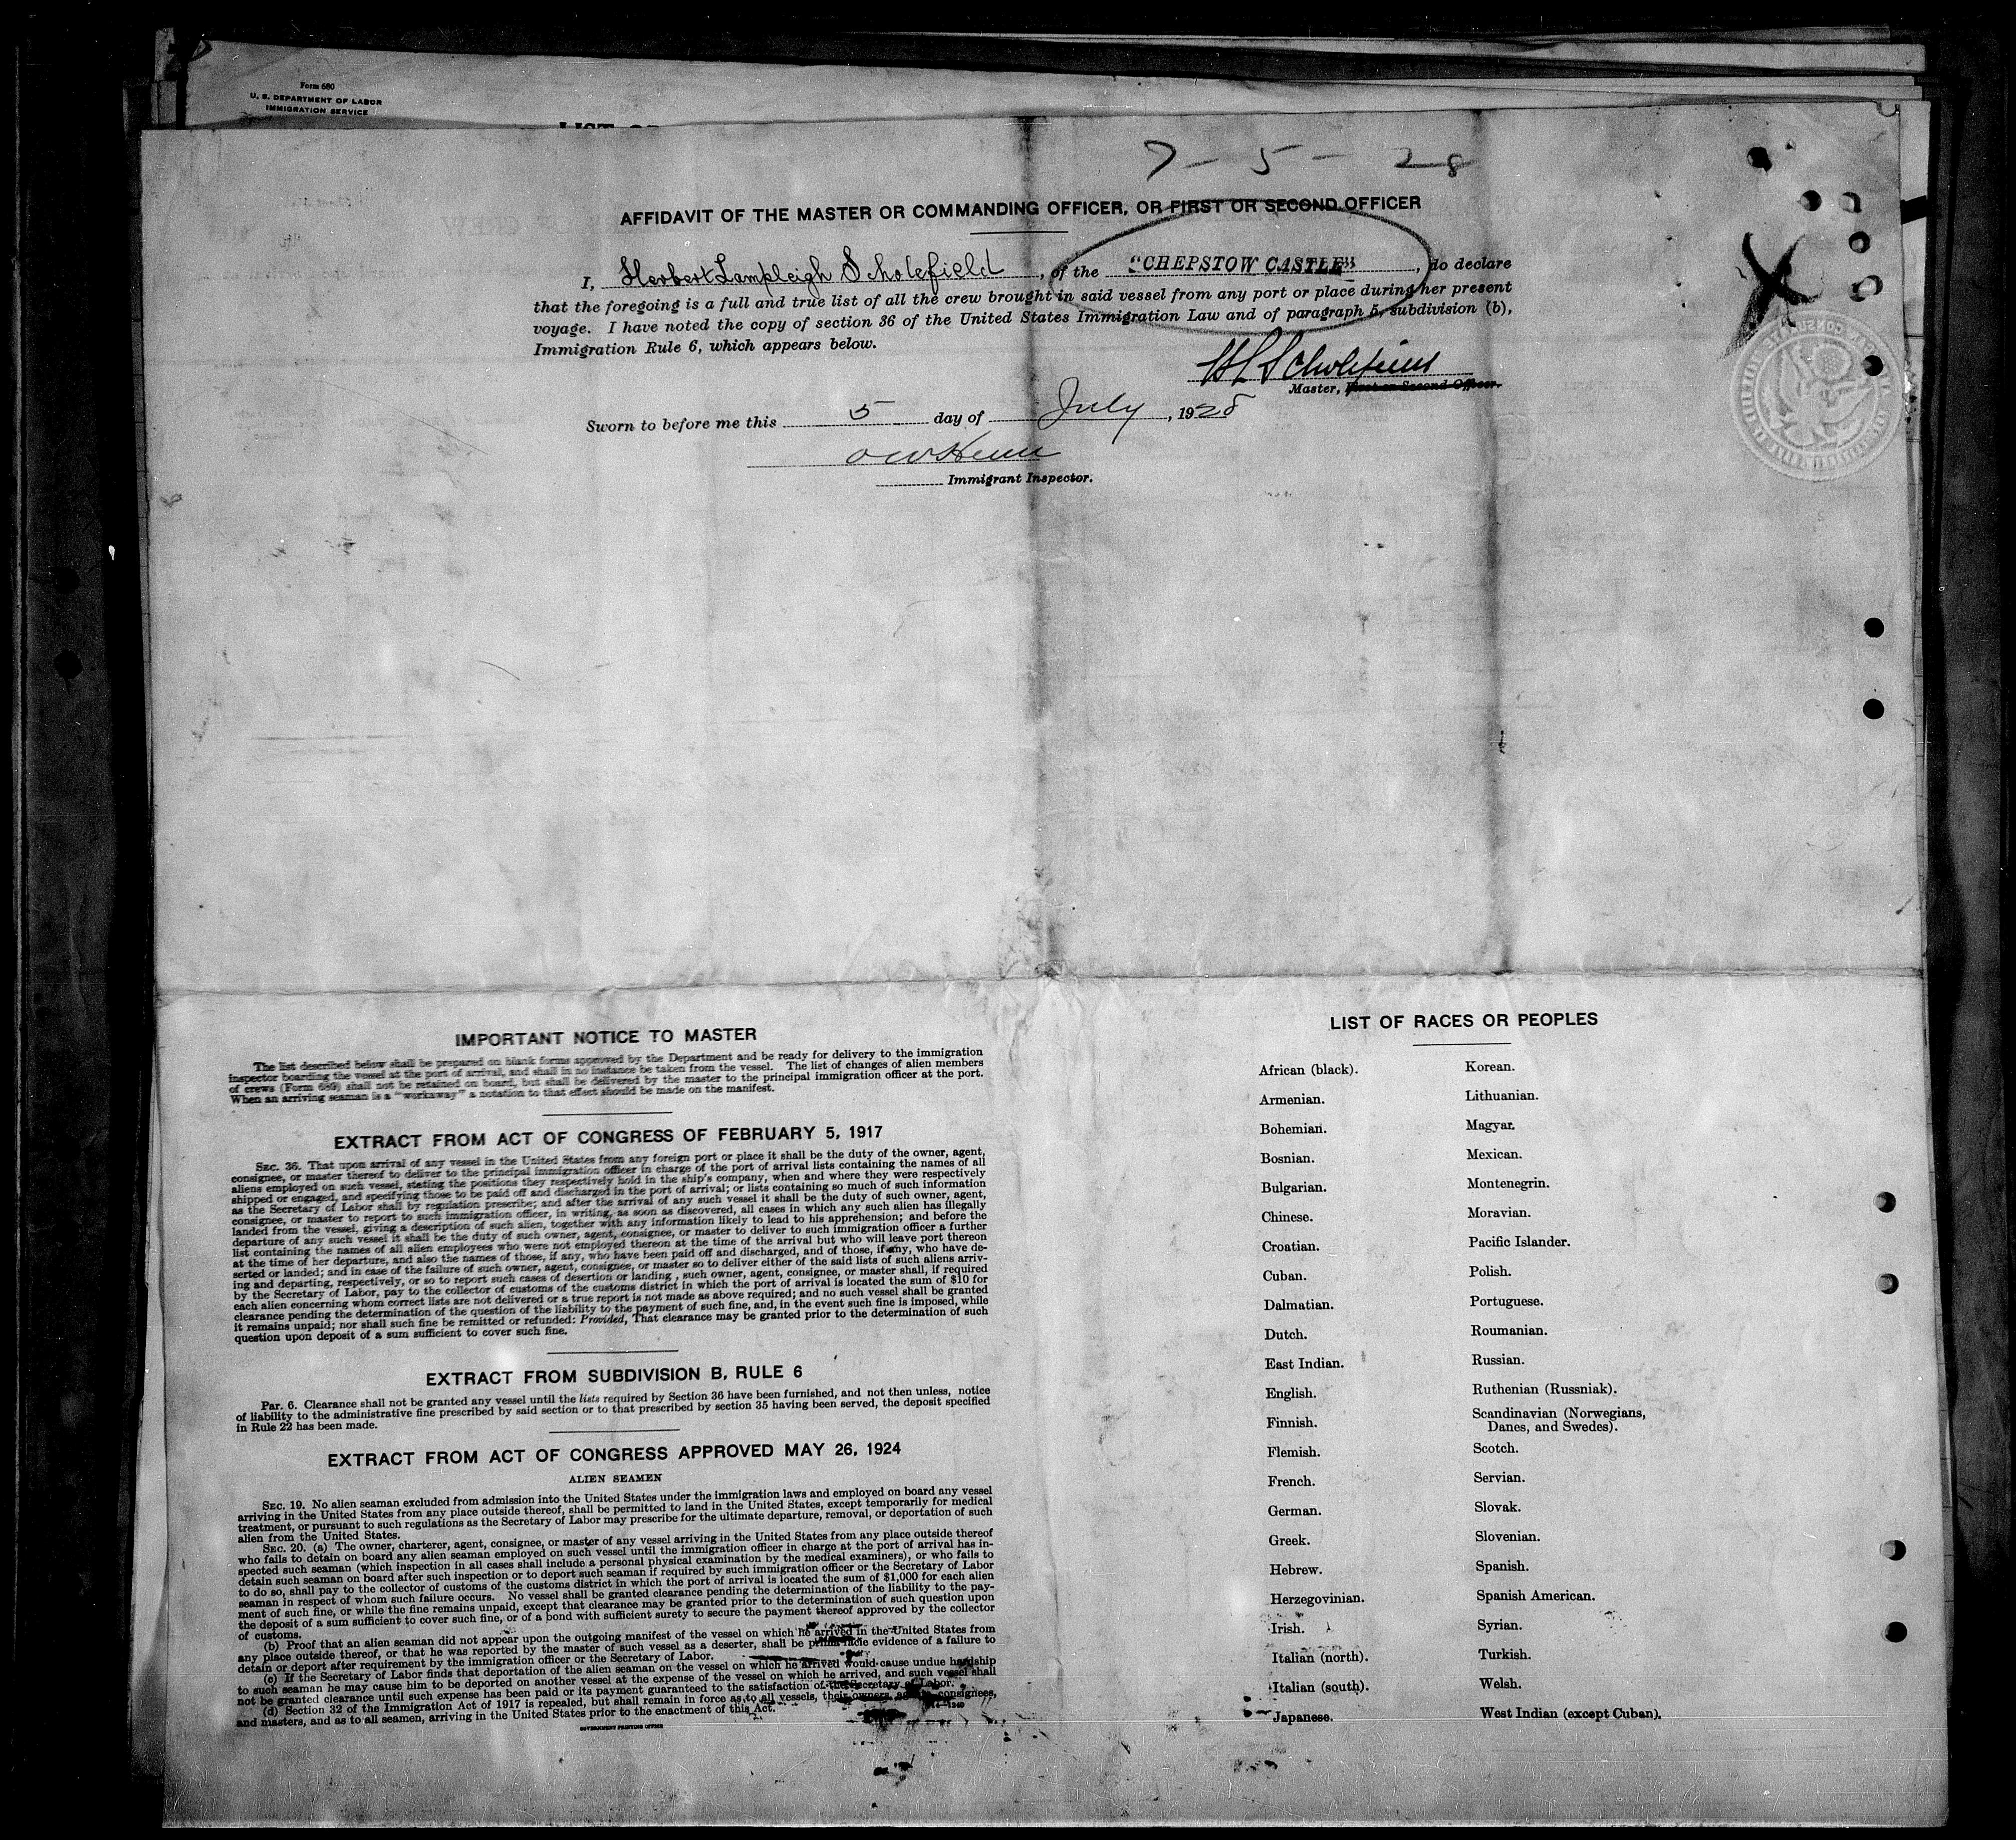 Form 680
U. S. DEPARTMENT OF LABOR
IMMIGRATION SERVICE
7 - 5 - 28
AFFIDAVIT OF THE MASTER OR COMMANDING OFFICER, OR FIRST OR SECOND OFFICER
I, Herbert Lampleigh Scholefield, of the "CHEPSTOW CASTLE", do declare
that the foregoing is a full and true list of all the crew brought in said vessel from any port or place during her present
voyage. I have noted the copy of section 36 of the United States Immigration Law and of paragraph 5, subdivision (b),
Immigration Rule 6, which appears below.
Master, First or Second Officer.
Sworn to before me this 5 day of July, 1928
Immigrant Inspector.
IMPORTANT NOTICE TO MASTER
The list described below shall be prepared on blank forms approved by the Department and be ready for delivery to the immigration
inspector boarding the vessel at the port of arrival, and shall in no instance be taken from the vessel. The list of changes of alien members
of crews (Form 689) shall not be retained on board, but shall be delivered by the master to the principal immigration officer at the port.
When an arriving seaman is a "workaway" a notation to that effect should be made on the manifest.
EXTRACT FROM ACT OF CONGRESS OF FEBRUARY 5, 1917
SEC. 36. That upon arrival of any vessel in the United States from any foreign port or place it shall be the duty of the owner, agent,
consignee, or master thereof to deliver to the principal immigration officer in charge of the port of arrival lists containing the names of all
aliens employed on such vessel, stating the positions they respectively hold in the ship's company, when and where they were respectively
shipped or engaged, and specifying those to be paid off and discharged in the port of arrival; or lists containing so much of such information
as the Secretary of Labor shall by regulation prescribe; and after the arrival of any such vessel it shall be the duty of such owner, agent,
consignee, or master to report to such immigration officer, in writing, as soon as discovered, all cases in which any such alien has illegally
landed from the vessel, giving a description of such alien, together with any information likely to lead to his apprehension; and before the
departure of any such vessel it shall be the duty of such owner, agent, consignee, or master to deliver to such immigration officer a further
list containing the names of all alien employees who were not employed thereon at the time of the arrival but who will leave port thereon
at the time of her departure, and also the names of those, if any, who have been paid off and discharged, and of those, if any, who have de-
serted or landed; and in case of the failure of such owner, agent, consignee, or master so to deliver either of the said lists of such aliens arriv-
ing and departing, respectively, or so to report such cases of desertion or landing, such owner, agent, consignee, or master shall, if required
by the Secretary of Labor, pay to the collector of customs of the customs district in which the port of arrival is located the sum of $10 for
each alien concerning whom correct lists are not delivered or a true report is not made as above required; and no such vessel shall be granted
clearance pending the determination of the question of the liability to the payment of such fine, and, in the event such fine is imposed, while
it remains unpaid; nor shall such fine be remitted or refunded: Provided, That clearance may be granted prior to the determination of such
question upon deposit of a sum sufficient to cover such fine.
EXTRACT FROM SUBDIVISION B, RULE 6
Par. 6. Clearance shall not be granted any vessel until the lists required by Section 36 have been furnished, and not then unless, notice
of liability to the administrative fine prescribed by said section or to that prescribed by section 35 having been served, the deposit specified
in Rule 22 has been made.
EXTRACT FROM ACT OF CONGRESS APPROVED MAY 26, 1924
ALIEN SEAMEN
SEC. 19. No alien seaman excluded from admission into the United States under the immigration laws and employed on board any vessel
arriving in the United States from any place outside thereof, shall be permitted to land in the United States, except temporarily for medical
treatment, or pursuant to such regulations as the Secretary of Labor may prescribe for the ultimate departure, removal, or deportation of such
alien from the United States.
SEC. 20. (a) The owner, charterer, agent, consignee, or master of any vessel arriving in the United States from any place outside thereof
who fails to detain on board any alien seaman employed on such vessel until the immigration officer in charge at the port of arrival has in-
spected such seaman (which inspection in all cases shall include a personal physical examination by the medical examiners), or who fails to
detain such seaman on board after such inspection or to deport such seaman if required by such immigration officer or the Secretary of Labor
to do so, shall pay to the collector of customs of the customs district in which the port of arrival is located the sum of $1,000 for each alien
seaman in respect of whom such failure occurs. No vessel shall be granted clearance pending the determination of the liability to the pay-
ment of such fine, or while the fine remains unpaid, except that clearance may be granted prior to the determination of such question upon
the deposit of a sum sufficient to cover such fine, or of a bond with sufficient surety to secure the payment thereof approved by the collector
of customs.
(b) Proof that an alien seaman did not appear upon the outgoing manifest of the vessel on which he arrived in the United States from
any place outside thereof, or that he was reported by the master of such vessel as a deserter, shall be prima facie evidence of a failure to
detain or deport after requirement by the immigration officer or the Secretary of Labor.
(c) If the Secretary of Labor finds that deportation of the alien seaman on the vessel on which he arrived would cause undue hardship
to such seaman he may cause him to be deported on another vessel at the expense of the vessel on which he arrived, and such vessel shall
not be granted clearance until such expense has been paid or its payment guaranteed to the satisfaction of the Secretary of Labor.
(d) Section 32 of the Immigration Act of 1917 is repealed, but shall remain in force as to all vessels, their owners, consignees,
and masters, and as to all seamen, arriving in the United States prior to the enactment of this Act.
GOVERNMENT PRINTING OFFICE
LIST OF RACES OR PEOPLES
African (black).
Armenian.
Bohemian.
Bosnian.
Bulgarian.
Chinese.
Croatian.
Cuban.
Dalmatian.
Dutch.
East Indian.
English.
Finnish.
Flemish.
French.
German.
Greek.
Hebrew.
Herzegovinian.
Irish.
Italian (north).
Italian (south).
Japanese.
Korean.
Lithuanian.
Magyar.
Mexican.
Montenegrin.
Moravian.
Pacific Islander.
Polish.
Portuguese.
Roumanian.
Russian.
Ruthenian (Russniak).
Scandinavian (Norwegians,
Danes, and Swedes).
Scotch.
Servian.
Slovak.
Slovenian.
Spanish.
Spanish American.
Syrian.
Turkish.
Welsh.
West Indian (except Cuban).